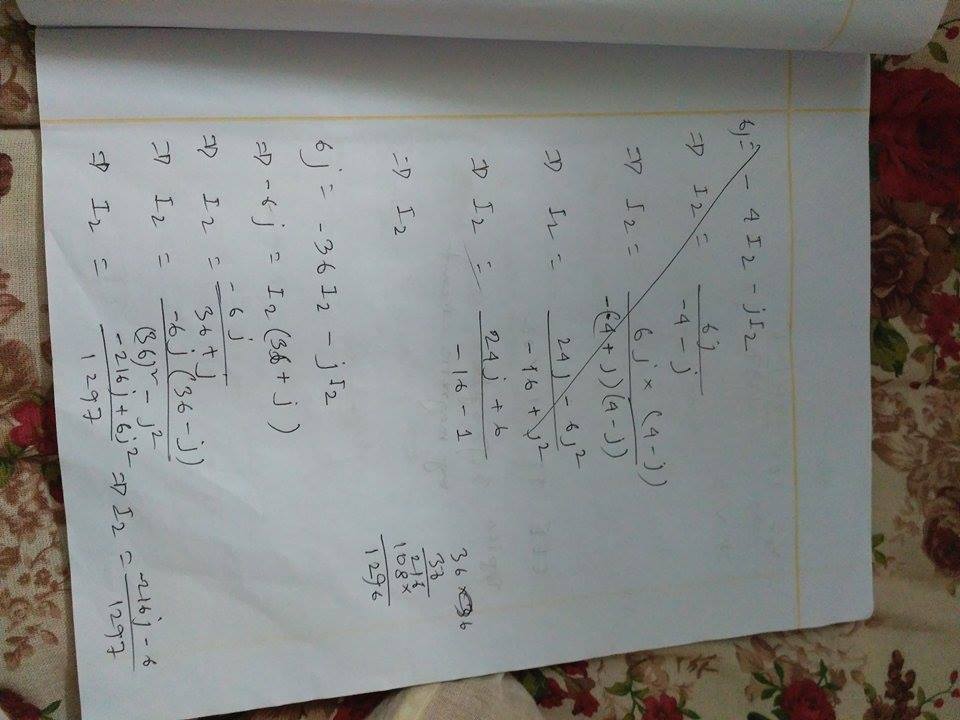 6j = - 4 I₂ - jI₂
⇒ I₂ = 6j / -4 - j
⇒ I₂ = 6j × (4-j) / -(4+j)(4-j)
⇒ I₂ = 24j - 6j² / -16 + j²
⇒ I₂ = 24j + 6 / -16 - 1
⇒ I₂
36 × 36
36
216
108×
1296
6j = -36 I₂ - j I₂
⇒ -6j = I₂ (36 + j)
⇒ I₂ = -6j / 36 + j
⇒ I₂ = -6j (36 - j) / (36)² - j²
⇒ I₂ = -216j + 6j² / 1297 ⇒ I₂ = -216j - 6 / 1297